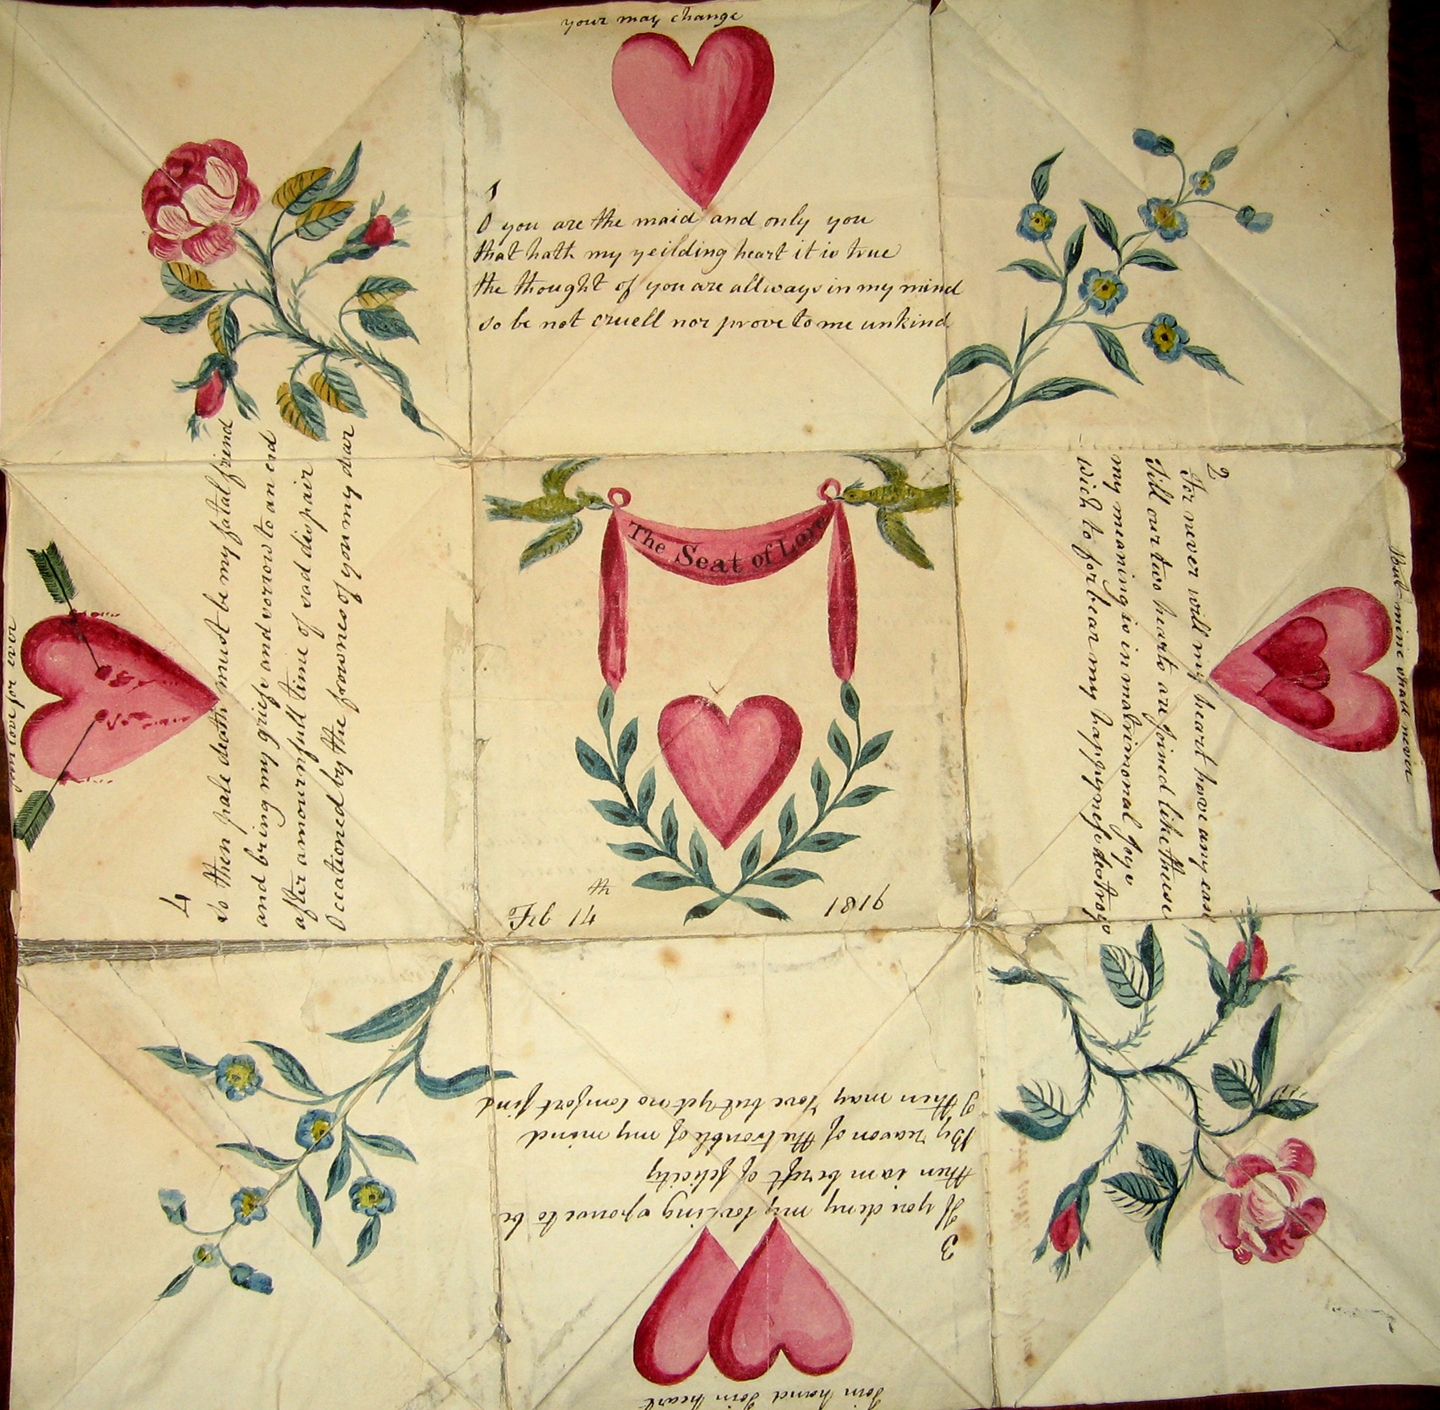 your may change
1
O you are the maid and only you
that hath my yeilding heart it is true
the thought of you are allways in my mind
so be not cruell nor prove to me unkind
But mine will never
2
For never will my heart have any ease
Till our two hearts are joined like these
my meaning is in matrimonal Joys
wich to forbear my happyness destroys
3
If you deny my loveing spouse to be
then i am bereft of felicity
By reason of the trouble of my mind
I then may love but yet no comfort find
Join hand Join heart
4
so then pale death must be my fatal friend
and bring my grief and sorrow to an end
after a mournfull time of sad dispair
Occationed by the frownes of you my dear
love for ever
The Seat of Love
Feb 14th 1816